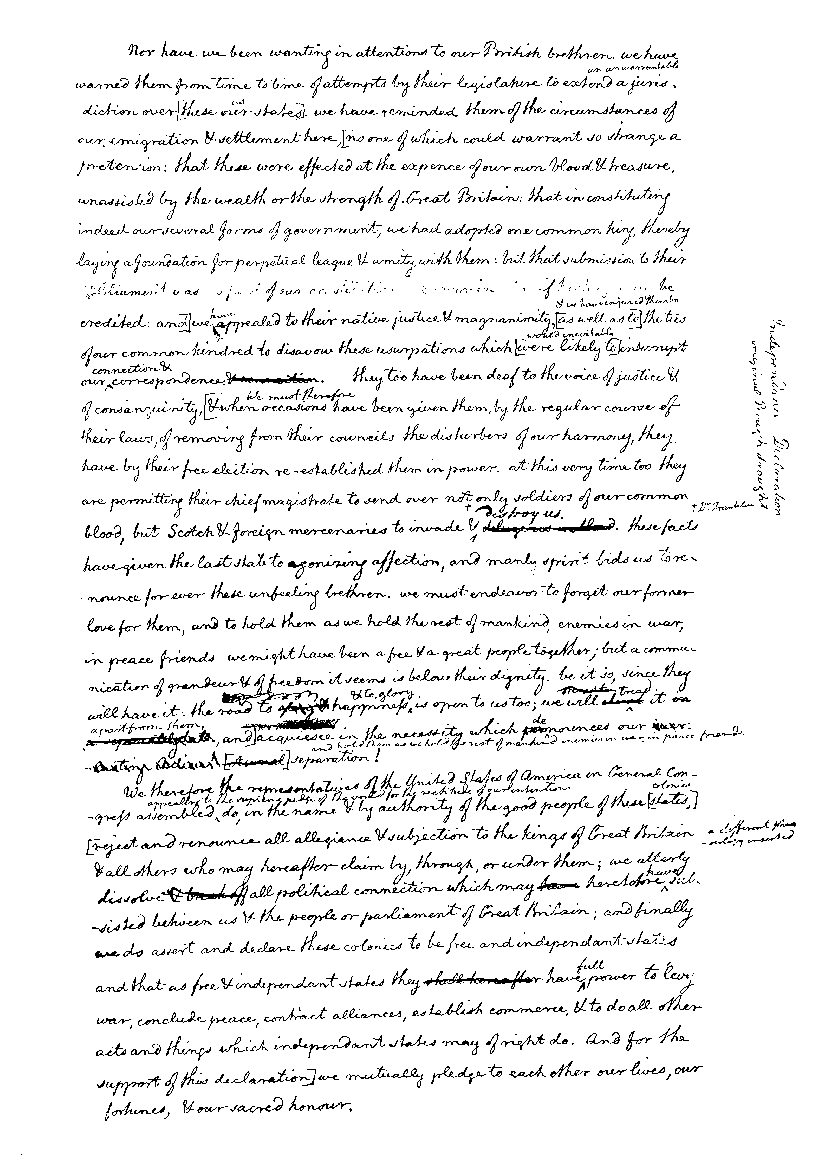 Nor have we been wanting in attentions to our British brethren. we have
an unwarrantable
warned them from time to time of attempts by their legislature to extend a juris-
us
diction over [these our states]. we have reminded them of the circumstances of
our emigration & settlement here, [no one of which could warrant so strange a
pretension: that these were effected at the expence of our own blood & treasure,
unassisted by the wealth or the strength of Great Britain: that in constituting
indeed our several forms of government, we had adopted one common king, thereby
laying a foundation for perpetual league & amity with them: but that submission to their
parliament was part of our be
have & we have conjured them by
credited: and] we appealed to their native justice & magnanimity, [as well as to] the ties
would inevitably
of our common kindred to disavow these usurpations which [were likely to] interrupt
connection &
our correspondence. they too have been deaf to the voice of justice &
we must therefore
of consanguinity, [& when occasions have been given them, by the regular course of
their laws, of removing from their councils the disturbers of our harmony, they
have by their free election re-established them in power. at this very time too they
are permitting their chief magistrate to send over not only soldiers of our common
destroy us.
blood, but Scotch & foreign mercenaries to invade & deluge us in blood. these facts
+ Dr. Franklin
have given the last stab to agonizing affection, and manly spirit bids us to re-
nounce for ever these unfeeling brethren. we must endeavor to forget our former
love for them, and to hold them as we hold the rest of mankind, enemies in war,
in peace friends we might have been a free & a great people together; but a commu-
nication of grandeur & of freedom it seems is below their dignity. be it so, since they
& to glory
will have it. the road to happiness is open to us too; we will it
apart from them,
and] acquiesce in the necessity which denounces our
and hold them as we hold the rest of mankind enemies in war, in peace friends.
[eternal] separation!
We therefore the representatives of the United States of America in General Con-
appealing to the supreme judge of the world for the rectitude of our intentions
colonies
gress assembled, do, in the name & by authority of the good people of these [states,]
[reject and renounce all allegiance & subjection to the kings of Great Britain
& all others who may hereafter claim by, through, or under them; we utterly
have
dissolve & break off all political connection which may have heretofore sub-
sisted between us & the people or parliament of Great Britain; and finally
we do assert and declare these colonies to be free and independant states
full
and that as free & independant states they shall hereafter have power to levy
war, conclude peace, contract alliances, establish commerce, & to do all other
acts and things which independant states may of right do. And for the
support of this declaration] we mutually pledge to each other our lives, our
fortunes, & our sacred honour.
Independance Declaration
original rough draught